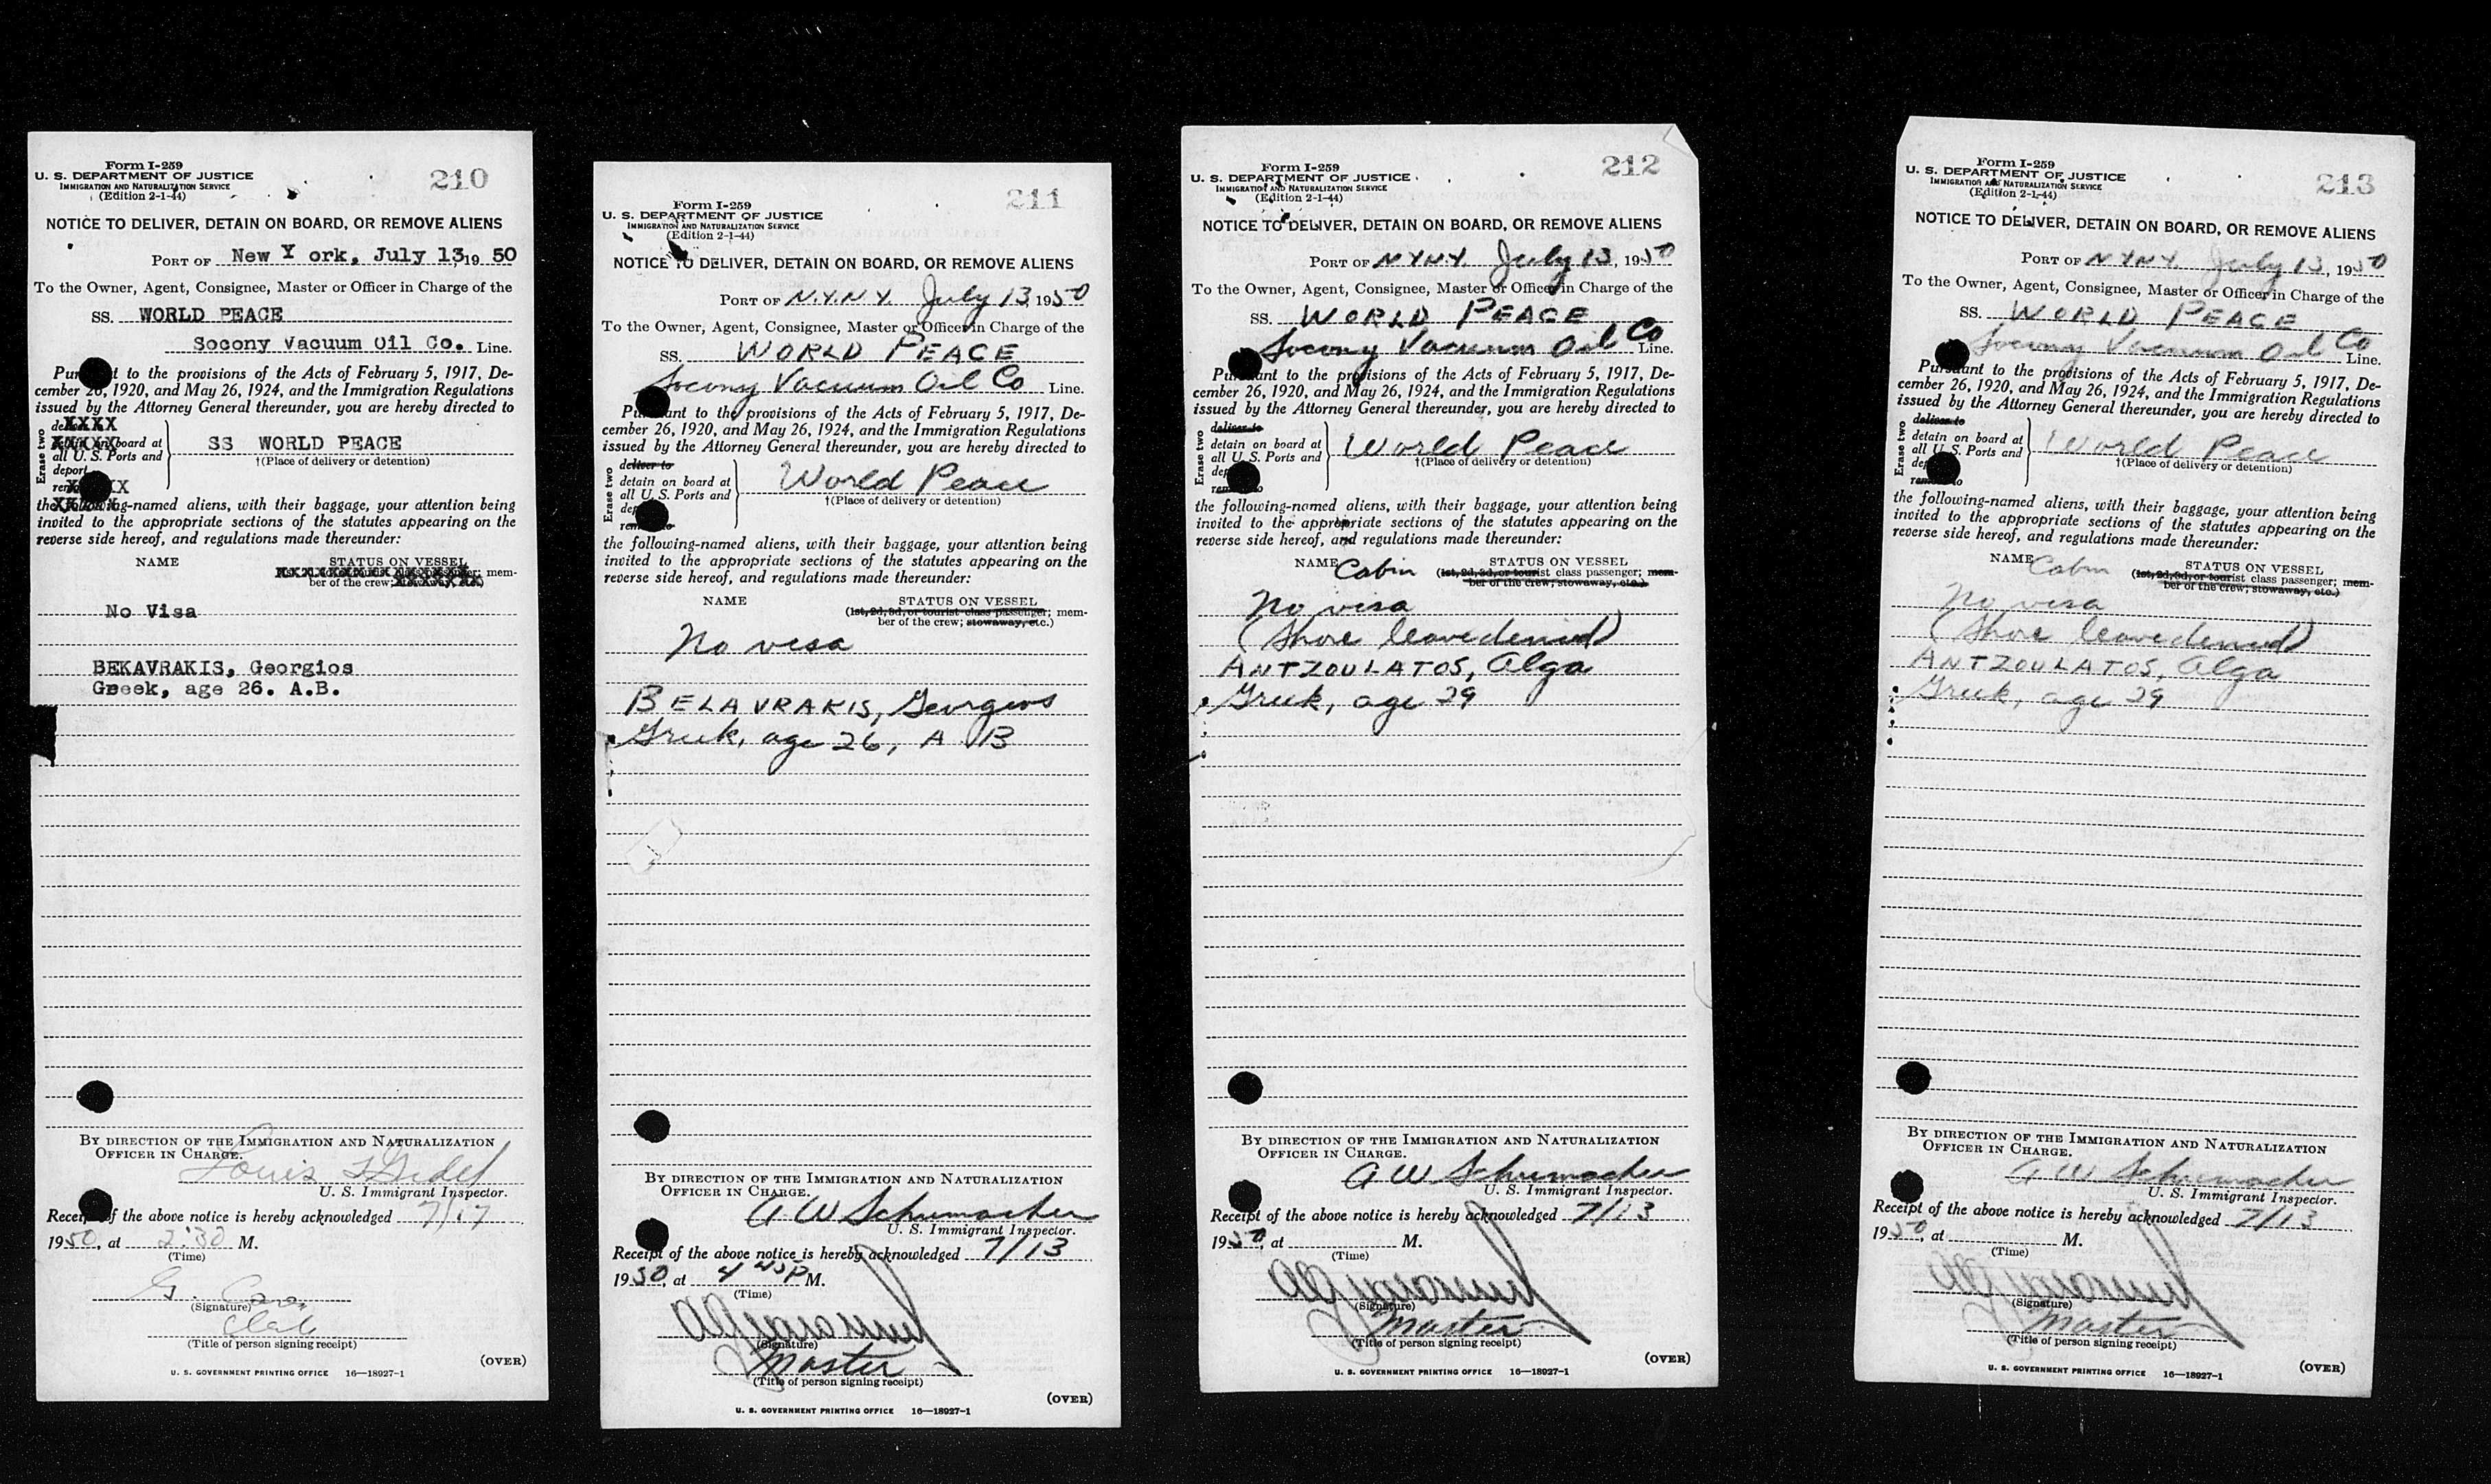 Form I-259
U. S. DEPARTMENT OF JUSTICE
IMMIGRATION AND NATURALIZATION SERVICE
(Edition 2-1-44)
210
NOTICE TO DELIVER, DETAIN ON BOARD, OR REMOVE ALIENS
PORT OF New Y ork, July 13, 19 50
To the Owner, Agent, Consignee, Master or Officer in Charge of the
SS. WORLD PEACE
Socony Vacuum Oil Co. Line.
Pursuant to the provisions of the Acts of February 5, 1917, De-
cember 26, 1920, and May 26, 1924, and the Immigration Regulations
issued by the Attorney General thereunder, you are hereby directed to
Erase two
XXXX
XXXXX board at
all U. S. Ports and
deport
SS WORLD PEACE
†(Place of delivery or detention)
the following-named aliens, with their baggage, your attention being
invited to the appropriate sections of the statutes appearing on the
reverse side hereof, and regulations made thereunder:
NAME STATUS ON VESSEL
mem-
ber of the crew;
No Visa
BEKAVRAKIS, Georgios
Greek, age 26. A.B.
BY DIRECTION OF THE IMMIGRATION AND NATURALIZATION
OFFICER IN CHARGE.
Louis
U. S. Immigrant Inspector.
Receipt of the above notice is hereby acknowledged 7/17
1950, at 2:30 M.
(Time)
G.
(Signature)
(Title of person signing receipt)
(OVER)
U. S. GOVERNMENT PRINTING OFFICE 16—18927-1
Form I-259
U. S. DEPARTMENT OF JUSTICE
IMMIGRATION AND NATURALIZATION SERVICE
(Edition 2-1-44)
211
NOTICE TO DELIVER, DETAIN ON BOARD, OR REMOVE ALIENS
PORT OF N.Y.N.Y. July 13 1950
To the Owner, Agent, Consignee, Master or Officer in Charge of the
SS. WORLD PEACE
Socony Vacuum Oil Co Line.
Pursuant to the provisions of the Acts of February 5, 1917, De-
cember 26, 1920, and May 26, 1924, and the Immigration Regulations
issued by the Attorney General thereunder, you are hereby directed to
Erase two
deliver to
detain on board at
all U. S. Ports and
remove to
World Peace
†(Place of delivery or detention)
the following-named aliens, with their baggage, your attention being
invited to the appropriate sections of the statutes appearing on the
reverse side hereof, and regulations made thereunder:
NAME STATUS ON VESSEL
(1st, 2d, 3d, or tourist class passenger; mem-
ber of the crew; stowaway, etc.)
No visa
BELAVRAKIS, Georgios
Greek, age 26, A B
BY DIRECTION OF THE IMMIGRATION AND NATURALIZATION
OFFICER IN CHARGE.
A W Schumacher
U. S. Immigrant Inspector.
Receipt of the above notice is hereby acknowledged 7/13
1950, at 4 45 P M.
(Time)
(Signature)
Master
(Title of person signing receipt)
(OVER)
U. S. GOVERNMENT PRINTING OFFICE 16—18927-1
Form I-259
U. S. DEPARTMENT OF JUSTICE
IMMIGRATION AND NATURALIZATION SERVICE
(Edition 2-1-44)
212
NOTICE TO DELIVER, DETAIN ON BOARD, OR REMOVE ALIENS
PORT OF N Y N Y. July 13, 1950
To the Owner, Agent, Consignee, Master or Officer in Charge of the
SS. WORLD PEACE
Socony Vacuum Oil Co Line.
Pursuant to the provisions of the Acts of February 5, 1917, De-
cember 26, 1920, and May 26, 1924, and the Immigration Regulations
issued by the Attorney General thereunder, you are hereby directed to
Erase two
deliver to
detain on board at
all U. S. Ports and
remove to
World Peace
†(Place of delivery or detention)
the following-named aliens, with their baggage, your attention being
invited to the appropriate sections of the statutes appearing on the
reverse side hereof, and regulations made thereunder:
NAME Cabin STATUS ON VESSEL
(1st, 2d, 3d, or tourist class passenger; mem-
ber of the crew; stowaway, etc.)
No visa
(Shore leave denied)
ANTZOULATOS, Alga
Greek, age 29
BY DIRECTION OF THE IMMIGRATION AND NATURALIZATION
OFFICER IN CHARGE.
A W Schumacher
U. S. Immigrant Inspector.
Receipt of the above notice is hereby acknowledged 7/13
1950, at M.
(Time)
(Signature)
Master
(Title of person signing receipt)
(OVER)
U. S. GOVERNMENT PRINTING OFFICE 16—18927-1
Form I-259
U. S. DEPARTMENT OF JUSTICE
IMMIGRATION AND NATURALIZATION SERVICE
(Edition 2-1-44)
213
NOTICE TO DELIVER, DETAIN ON BOARD, OR REMOVE ALIENS
PORT OF N Y N Y. July 13, 1950
To the Owner, Agent, Consignee, Master or Officer in Charge of the
SS. WORLD PEACE
Socony Vacuum Oil Co Line.
Pursuant to the provisions of the Acts of February 5, 1917, De-
cember 26, 1920, and May 26, 1924, and the Immigration Regulations
issued by the Attorney General thereunder, you are hereby directed to
Erase two
deliver to
detain on board at
all U. S. Ports and
remove to
World Peace
†(Place of delivery or detention)
the following-named aliens, with their baggage, your attention being
invited to the appropriate sections of the statutes appearing on the
reverse side hereof, and regulations made thereunder:
NAME Cabin STATUS ON VESSEL
(1st, 2d, 3d, or tourist class passenger; mem-
ber of the crew; stowaway, etc.)
No visa
(Shore leave denied)
ANTZOULATOS, Alga
Greek, age 29
BY DIRECTION OF THE IMMIGRATION AND NATURALIZATION
OFFICER IN CHARGE.
A W Schumacher
U. S. Immigrant Inspector.
Receipt of the above notice is hereby acknowledged 7/13
1950, at M.
(Time)
(Signature)
Master
(Title of person signing receipt)
(OVER)
U. S. GOVERNMENT PRINTING OFFICE 16—18927-1